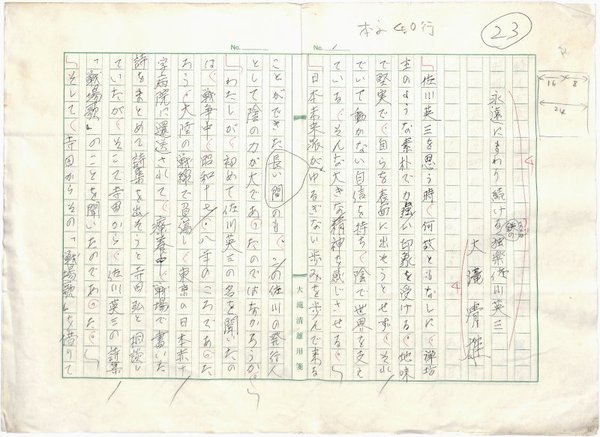 23
本文40行
No.
No. 1
16
8
24
永遠にまわり続ける独楽佐川英三
大滝清雄
佐川英三を思う時、何故ともなしに、禅坊
主のような素朴で力強い印象を受ける。地味
で堅実で、自らを表面に出そうとせず、それ
でいて動かない自信を持ち、陰で世界を支え
ている。そんな大きな精神を感じさせる。
日本未来派がゆるぎない歩みを歩んで来る
大滝清雄用箋
ことができた長い間のも、この佐川の発行人
としての陰の力が大であったのではなかろうか。
わたしが、初めて佐川英三の名を聞いたの
は、戦争中、昭和十七、八年のころであった
ろう。大陸の戦線で負傷して東京の日本赤十
字病院に還送されて、療養中、戦場で書いた
詩をまとめて詩集を出そうと寺田弘と相談し
ていたが、そこで寺田から、佐川英三の詩集
「戦場歌」のことを聞いたのであった。
そして、寺田からその「戦場歌」を借りて